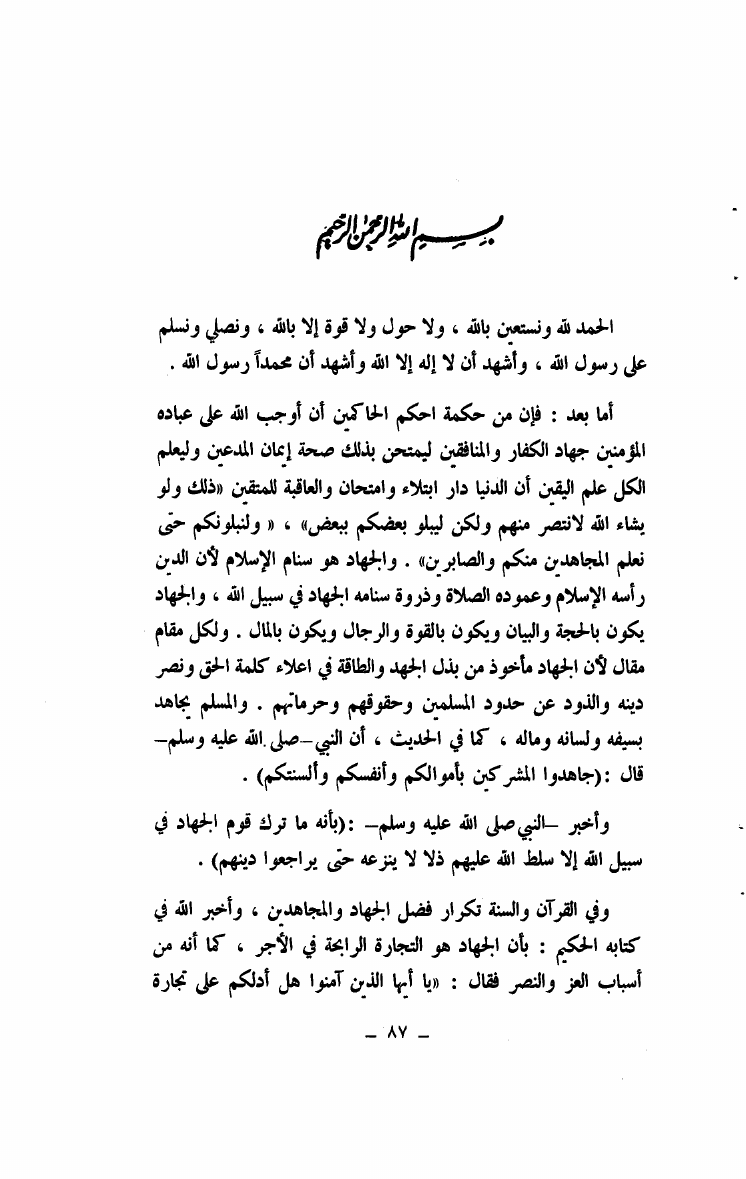 بسم الله الرحمن الرحيم
الحمد لله ونستعين بالله ، ولا حول ولا قوة إلا بالله ، ونصلي ونسلم
على رسول الله ، وأشهد أن لا إله إلا الله وأشهد أن محمداً رسول الله .
أما بعد : فإن من حكمة احكم الحاكمين أن أوجب الله على عباده
المؤمنين جهاد الكفار والمنافقين ليمتحن بذلك صحة إيمان المدعين وليعلم
الكل علم اليقين أن الدنيا دار ابتلاء وامتحان والعاقبة للمتقين «ذلك ولو
يشاء الله لانتصر منهم ولكن ليبلو بعضكم ببعض» ، « ولنبلونكم حتى
نعلم المجاهدين منكم والصابرين» . والجهاد هو سنام الإسلام لأن الدين
رأسه الإسلام وعموده الصلاة وذروة سنامه الجهاد في سبيل الله ، والجهاد
يكون بالحجة والبيان ويكون بالقوة والرجال ويكون بالمال . ولكل مقام
مقال لأن الجهاد مأخوذ من بذل الجهد والطاقة في اعلاء كلمة الحق ونصر
دينه والذود عن حدود المسلمين وحقوقهم وحرماتهم . والمسلم يجاهد
بسيفه ولسانه وماله ، كما في الحديث ، أن النبي–صلى الله عليه وسلم–
قال :(جاهدوا المشركين بأموالكم وأنفسكم وألسنتكم) .
وأخبر –النبي صلى الله عليه وسلم– :(بأنه ما ترك قوم الجهاد في
سبيل الله إلا سلط الله عليهم ذلا لا ينزعه حتى يراجعوا دينهم) .
وفي القرآن والسنة تكرار فضل الجهاد والمجاهدين ، وأخبر الله في
كتابه الحكيم : بأن الجهاد هو التجارة الرابحة في الأجر ، كما أنه من
أسباب العز والنصر فقال : «يا أيها الذين آمنوا هل أدلكم على تجارة
– ٨٧ –